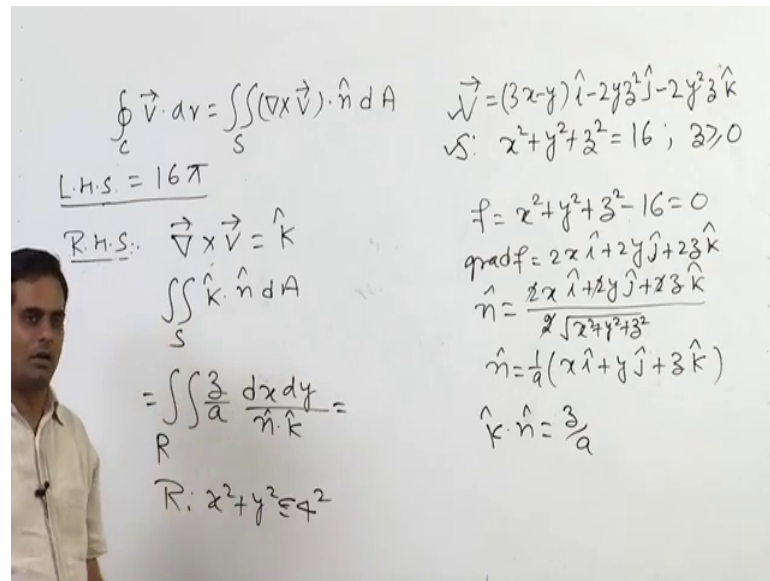 ∮_C V⃗·dr = ∬_S (∇×V⃗)·n̂ dA
L.H.S. = 16π
R.H.S:. ∇⃗×V⃗ = k̂
∬_S k̂·n̂ dA
= ∬_R z/a dxdy/(n̂·k̂) =
R: x²+y²≤4²
✓V⃗ = (3x-y)î-2yz²ĵ-2y²zk̂
✓S: x²+y²+z² = 16 ; z≥0
f = x²+y²+z²-16 = 0
gradf = 2xî+2yĵ+2zk̂
n̂ = (2xî+2yĵ+2zk̂)/(2√(x²+y²+z²))
n̂ = 1/a (xî+yĵ+zk̂)
k̂·n̂ = z/a